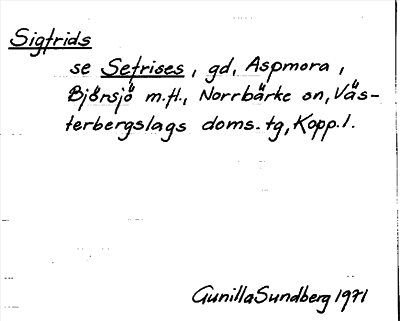 Sigfrids
se Sefrises, gd, Aspmora,
Björsjö m.fl., Norrbärke sn, Väs-
terbergslags doms. tg, Kopp. l.
Gunilla Sundberg 1971